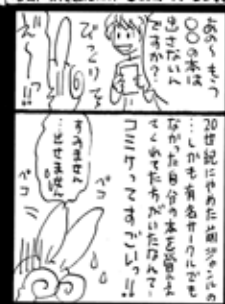 あの〜もう
〇〇の本は
出さないん
ですか?
びっくりで
え〜!!
20世紀にやめた前ジャンルの
…しかも有名サークルでも
なかった自分の本を覚え
ててくれてた方がいたなんて…
コミケってすごいっ!!
すみません
…出せません
ペコ
ペコ